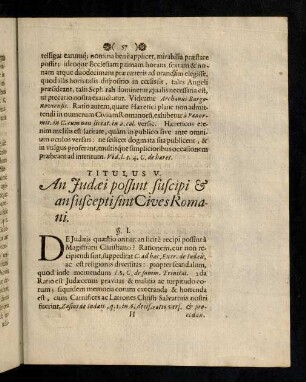 57
telligat earumq; nomina bene applicet, mirabilia præstare
possit; ideoque Ecclesiam primam horam, sextam & no-
nam atque duodecimam præ cœteris ad orandum elegisse,
quod illis horis talis dispositio existat, tales Angeli
præsideant, talis Seph. rah dominetur, qualis necessaria est,
ut precatio nostra exaudiatur. Videatur Archanus
novensis. Ratio autem, quare Hæretici palàm non admit-
tendi in numerum Civium Romanorũ, exhibetur à
in C. cum non liceat. in z. vel. versic. Hæreticos e-
nim melius est latitare, quàm in publico sive ante omnium
oculos versari: ne scilicet dogmata sua publicent, &
in vulgus proferant, multisque simplicioribus occasionem
præbeant ad interitum. Vid. l. 2. 4. C. de hæret.
TITULUS V.
An Judæi possint suscipi &
an suscepti sint Cives Roma-
ni.
§. I.
DE Judæis quæstio oritur, an licitè recipi possint à
Magistratu Christiano? Rationem, cur non re-
cipiendi sint, suppeditat C. ad hæc, Extr. de Judæis,
ac est religionis diversitas: propter scandalum,
quod inde metuendum l. 8. C. de summ. Trinitat. 2da
Ratio est Judæorum pravitas & malitia ac turpitudo eo-
rum; siquidem memoria eorum execranda & horrenda
est, cum Carnifices ac Latrones Christi Salvatoris nostri
fuerint, Zasius de Judæis, q. 1. in 2. versic. & pro-
H